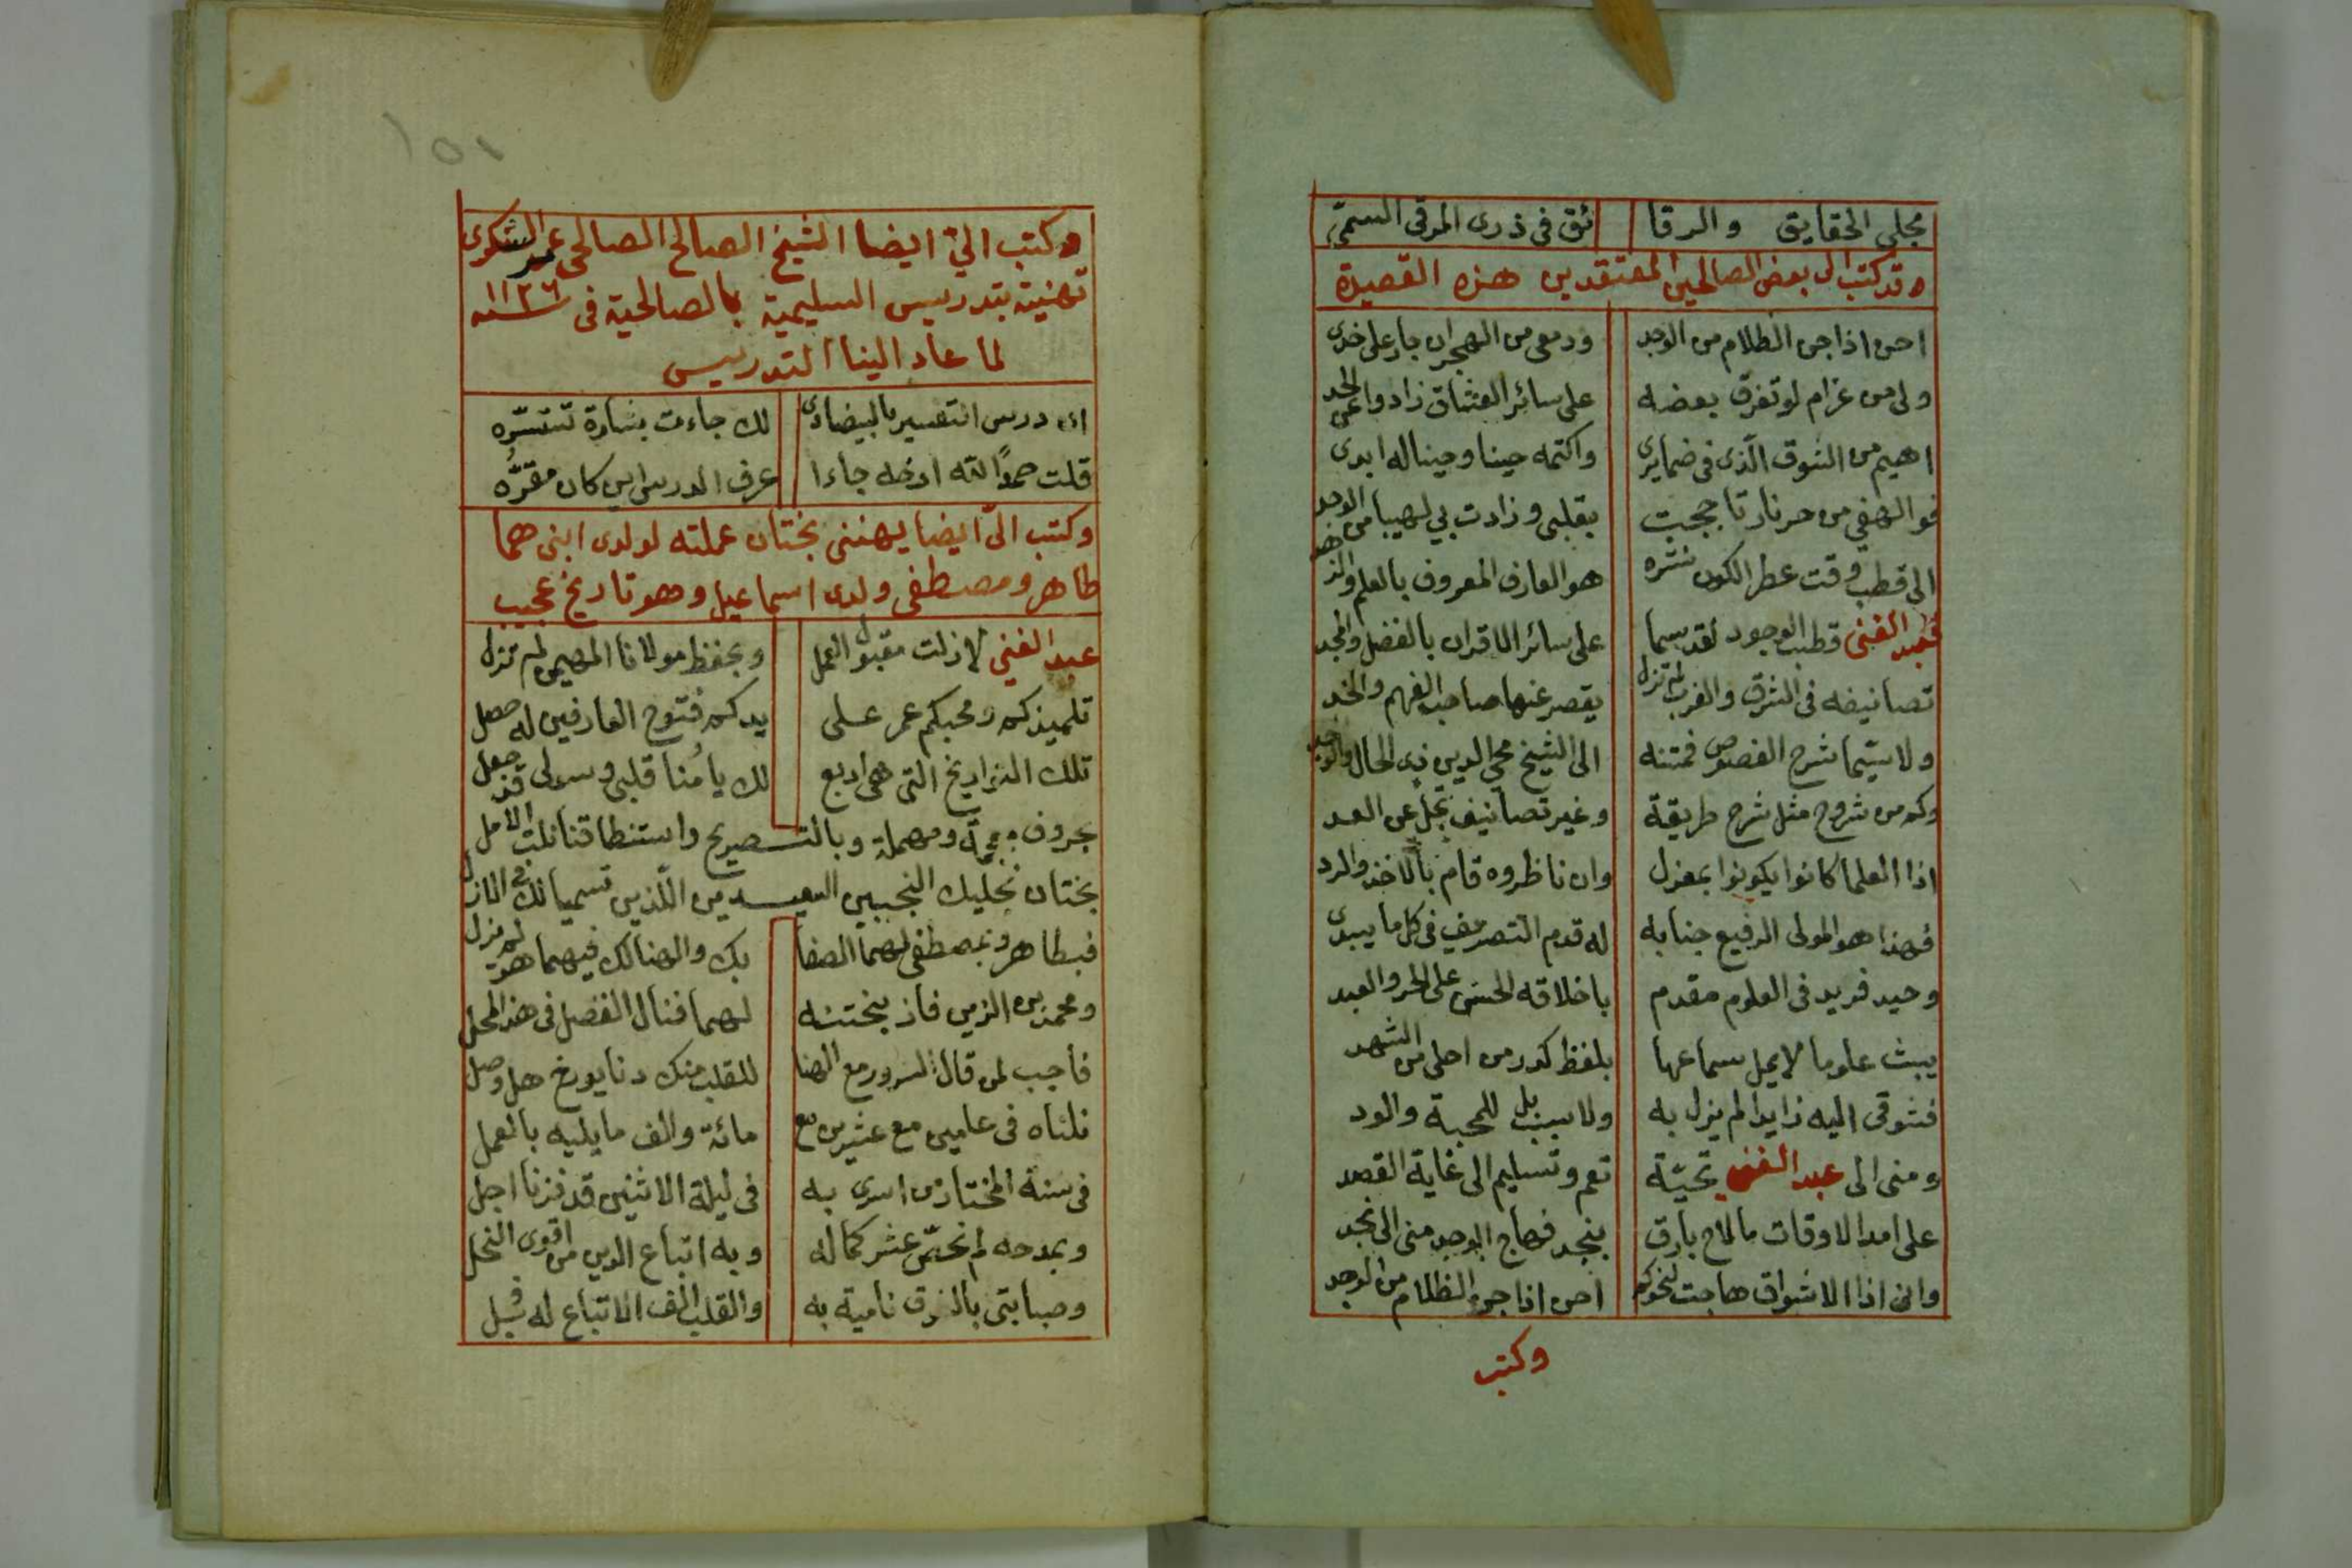 مجلى الحقايق والرقا ئق فى ذرى المرقى السمىّ
وقد كتب الى بعض الصالحين المعتقدين هذه القصيدة
احن اذا جن الظلام من الوجد ودمعى من الهجران جار على خدى
ولى من غرام لو تفرق بعضه على سائر العشاق زادوا عن الحد
اهيم من الشوق الّذى فى ضمايرى واكتمه حينا وحينا له ابدى
فوالهفي من حر نار تاججت بقلبى وزادت بي لهيبا من الوجد
الى قطب وقت عطر الكون نشره هو العارف المعروف بالعلم والزهد
فعبد الغنى قطب الوجود لقد سما على سائر الاقران بالفضل والمجد
تصانيفه فى الشرق والغرب لم تزل يقصر عنها صاحب الفهم
ولا سيّما شرح الفصوص فمتنه الى الشيخ محي الدين ذى الحال والوجد
وكم من شروح مثل شرح طريقة وغير تصانيف تجلّ عن العد
اذا العلما كانوا يكونوا بمعزل وان ناظروه قام بالاخذ والرد
فهذا هو المولى الرفيع جنابه له قدم التصريف فى كل ما يبدى
وحيد فريد فى العلوم مقدم باخلاقه الحسنى على الحر والعبد
يبث علوما لا يمل سماعها بلفظ كدر من احلى من الشهد
فشوقى اليه زايدا لم يزل به ولا سيب بل للمحبة والود
ومنى الى عبد الغنى تحيّة تعم وتسليم الى غاية القصد
على امد الاوقات ما لاح بارق بنجد فهاج الوجد منى الى نجد
وانى اذا الاشواق هاجت لنحوكم احن اذا جن الظلام من الوجد
وكتب
١٥١
وكتب اليّ ايضا الشيخ الصالح الصالحى عمر الشكورى
تهنية بتدريس السليمية بالصالحية فى سنة ١١٢٦
لما عاد الينا التدريس
ان درس التفسير بالبيضاوى لك جاءت بشارة تتسرّه
قلت حمدًا لله اذ له جاءا عرف الدرس اين كان مقرّه
وكتب الىّ ايضا يهننى بختان عملته لولدى ابنى هما
طاهر ومصطفى ولدى اسماعيل وهو تاريخ عجيب
عبد الغني لا زلت مقبول العمل وبحفظ مولانا المهيمن لم تزل
تلميذكم ومحبكم عمر على يدكم فتوح العارفين له حصل
تلك التواريخ التى هى اربع لك يا مُنا قلبى وسولى قد جعل
بحروف معجمة ومهملة وبالتصريح واستنطاقنا نلت الامل
بختان نجليك النجيبين السعيدين اللّذين تسميا لك فى الازل
فبطاهر وبمصطفى لهما الصفا بك والهنا لك فيهما هو لم يزل
ومحمد بن الزين فاز بختنه لهما فنال الفضل فى هذا المحل
فاجب لمن قال السرور مع الهنا للقلب منك دنا يورخ هل وصل
نلناه فى عامين مع عشرين مع مائة والف ما يليه بالعمل
فى سنة المختار من اسرى به فى ليلة الاثنين قد فزنا اجل
وبمدحه لم نحتمى عشر كماله وبه اتباع الدين من اقوى النحل
وصبابتى بالذوق نامية به والقلب الف الاتباع له قبل